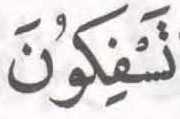 تَسْفِكُونَ